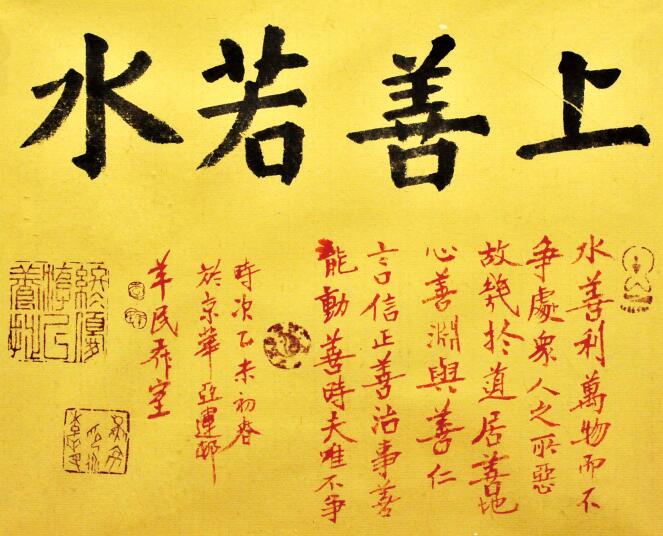 上善若水
水善利萬物而不
争處衆人之所惡
故幾於道居善地
心善淵與善仁
言信正善治事善
能動善時夫唯不争
時次乙未初春
於京華亞運邨
羊民
室